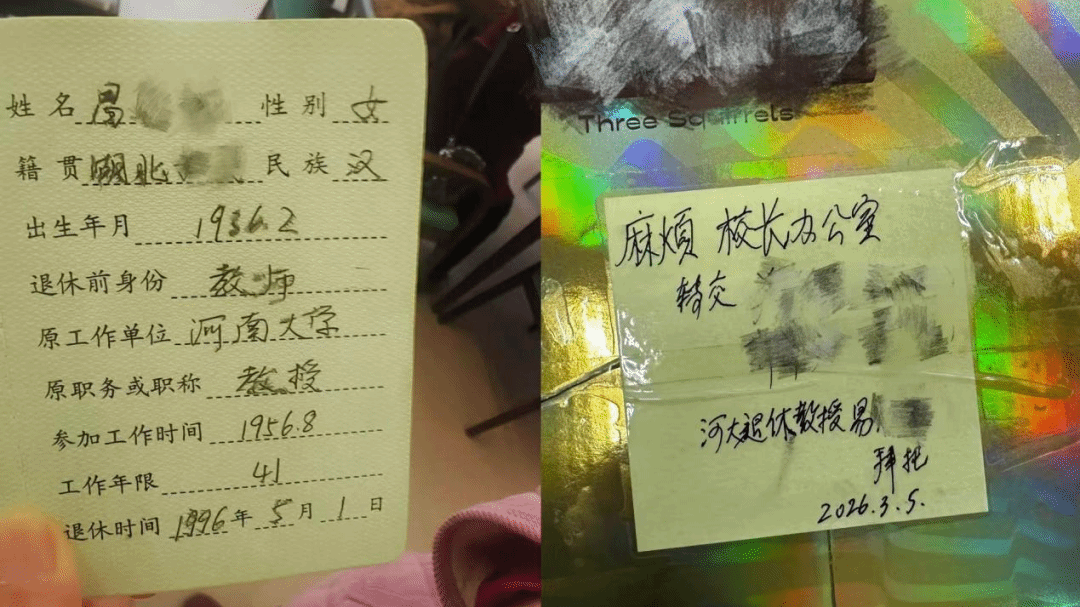 姓名 易 性别 女
籍贯 湖北 民族 汉
出生年月 1936.2
退休前身份 教师
原工作单位 河南大学
原职务或职称 教授
参加工作时间 1956.8
工作年限 41
退休时间 1996年5月1日
Three Squirrels
麻烦 校长办公室
转交
河大退休教授易
拜托
2026.3.5.